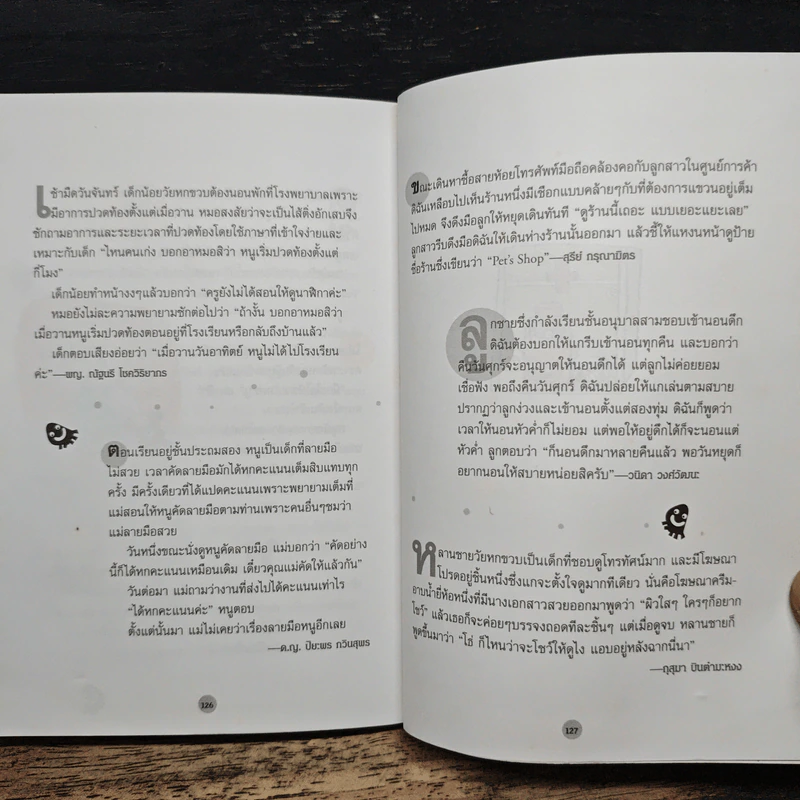 เช้ามืดวันจันทร์ เด็กน้อยวัยหกขวบต้องนอนพักที่โรงพยาบาลเพราะ
มีอาการปวดท้องตั้งแต่เมื่อวาน หมอสงสัยว่าจะเป็นไส้ติ่งอักเสบจึง
ซักถามอาการและระยะเวลาที่ปวดท้องโดยใช้ภาษาที่เข้าใจง่ายและ
เหมาะกับเด็ก “ไหนคนเก่ง บอกอาหมอสิว่า หนูเริ่มปวดท้องตั้งแต่
กี่โมง”
เด็กน้อยทำหน้างงๆแล้วบอกว่า “ครูยังไม่ได้สอนให้ดูนาฬิกาค่ะ”
หมอยังไม่ละความพยายามซักต่อไปว่า “ถ้างั้น บอกอาหมอสิว่า
เมื่อวานหนูเริ่มปวดท้องตอนอยู่ที่โรงเรียนหรือกลับถึงบ้านแล้ว”
เด็กตอบเสียงอ่อยว่า “เมื่อวานวันอาทิตย์ หนูไม่ได้ไปโรงเรียน
ค่ะ”—พญ. ณัฐนรี โชควิริยากร
ตอนเรียนอยู่ชั้นประถมสอง หนูเป็นเด็กที่ลายมือ
ไม่สวย เวลาคัดลายมือมักได้หกคะแนนเต็มสิบแทบทุก
ครั้ง มีครั้งเดียวที่ได้แปดคะแนนเพราะพยายามเต็มที่
แม่สอนให้หนูคัดลายมือตามท่านเพราะคนอื่นๆชมว่า
แม่ลายมือสวย
วันหนึ่งขณะนั่งดูหนูคัดลายมือ แม่บอกว่า “คัดอย่าง
นี้ก็ได้หกคะแนนเหมือนเดิม เดี๋ยวคุณแม่คัดให้แล้วกัน”
วันต่อมา แม่ถามว่างานที่ส่งไปได้คะแนนเท่าไร
“ได้หกคะแนนค่ะ” หนูตอบ
ตั้งแต่นั้นมา แม่ไม่เคยว่าเรื่องลายมือหนูอีกเลย
—ด.ญ. ปิยะพร ภวินสุพร
126
ขณะเดินหาซื้อสายห้อยโทรศัพท์มือถือคล้องคอกับลูกสาวในศูนย์การค้า
ดิฉันเหลือบไปเห็นร้านหนึ่งมีเชือกแบบคล้ายๆกับที่ต้องการแขวนอยู่เต็ม
ไปหมด จึงดึงมือลูกให้หยุดเดินทันที “ดูร้านนี้เถอะ แบบเยอะแยะเลย”
ลูกสาวรีบดึงมือดิฉันให้เดินห่างร้านนั้นออกมา แล้วชี้ให้แหงนหน้าดูป้าย
ชื่อร้านซึ่งเขียนว่า “Pet's Shop”—สุรีย์ กรุณามิตร
ลูกชายซึ่งกำลังเรียนชั้นอนุบาลสามชอบเข้านอนดึก
ดิฉันต้องบอกให้แกรีบเข้านอนทุกคืน และบอกว่า
คืนวันศุกร์จะอนุญาตให้นอนดึกได้ แต่ลูกไม่ค่อยยอม
เชื่อฟัง พอถึงคืนวันศุกร์ ดิฉันปล่อยให้แกเล่นตามสบาย
ปรากฏว่าลูกง่วงและเข้านอนตั้งแต่สองทุ่ม ดิฉันก็พูดว่า
เวลาให้นอนหัวค่ำก็ไม่ยอม แต่พอให้อยู่ดึกได้ก็จะนอนแต่
หัวค่ำ ลูกตอบว่า “ก็นอนดึกมาหลายคืนแล้ว พอวันหยุดก็
อยากนอนให้สบายหน่อยสิครับ”—วนิดา วงศ์วัฒนะ
หลานชายวัยหกขวบเป็นเด็กที่ชอบดูโทรทัศน์มาก และมีโฆษณา
โปรดอยู่ชิ้นหนึ่งซึ่งแกจะตั้งใจดูมากทีเดียว นั่นคือโฆษณาครีม-
อาบน้ำยี่ห้อหนึ่งที่มีนางเอกสาวสวยออกมาพูดว่า “ผิวใสๆ ใครๆก็อยาก
โชว์” แล้วเธอก็จะค่อยๆบรรจงถอดทีละชิ้นๆ แต่เมื่อดูจบ หลานชายก็
พูดขึ้นมาว่า “โธ่ ก็ไหนว่าจะโชว์ให้ดูไง แอบอยู่หลังฉากนี่นา”
—กุสุมา ชินตำมะหงง
127